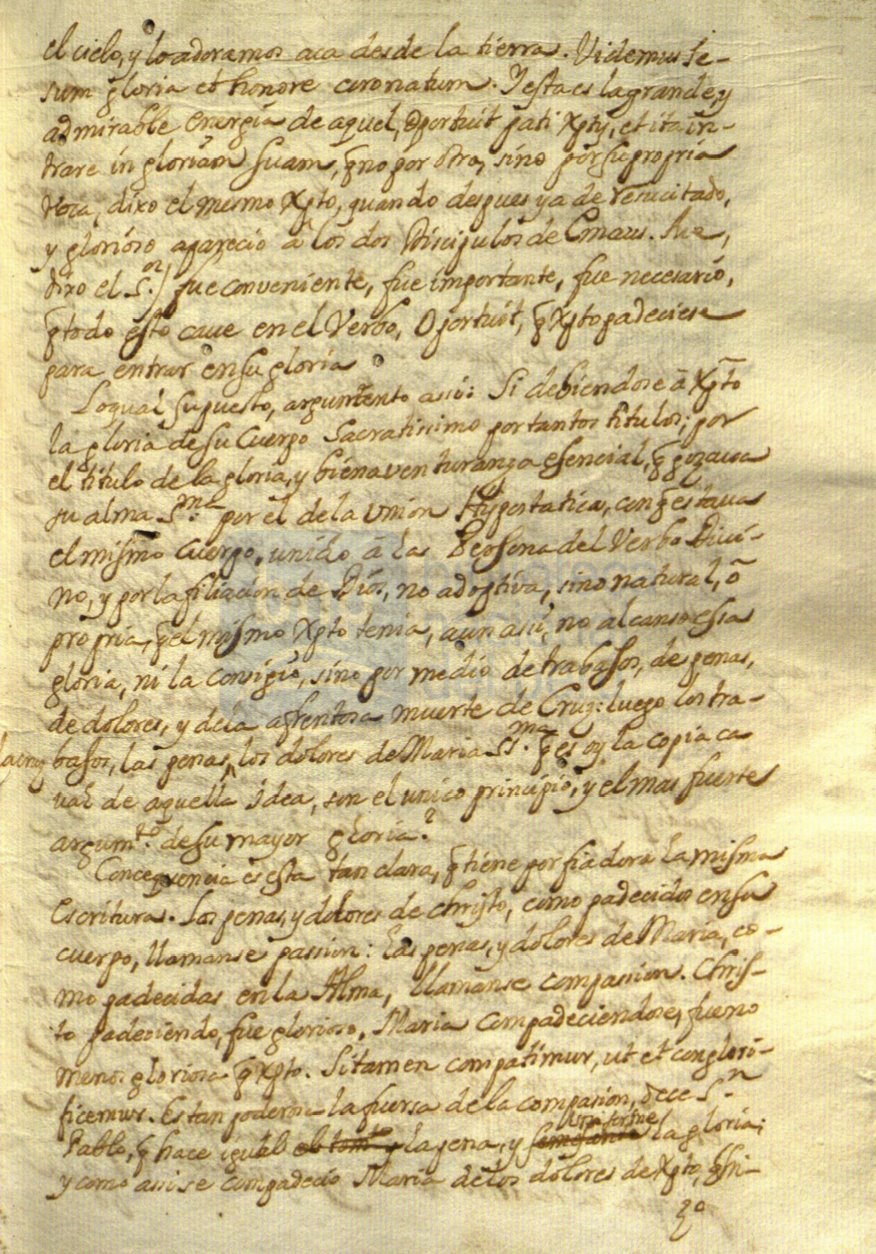 el cielo, y lo adoramos aca desde la tierra. Videmus Je-
sum gloria et honore coronatum. Y esta es la grande, y
admirable energia de aquel, Oportuit pati Xptũ, et ita in-
trare in gloriam suam, q̃ no por otra, sino por su propria
voca, dixo el mesmo Xpto, quando despues ya de resucitado,
y glorioso aparecio â los dos Discipulos de Emaus.
dixo el S.or, fue conveniente, fue importante, fue necesario,
q̃ todo esto cave en el Verbo, Oportuit, q̃ Xpto padeciese
para entrar en su gloria
Lo qual supuesto, argumento assi: Si debiendose â Xp̃to
la gloria de su Cuerpo Sacratissimo por tantos titulos; por
el titulo de la gloria, y bienaventuranza esencial, q̃ gozava
su alma S.ma por el de la union Hypostatica, con q̃ estava
el mismo cuerpo, unido â las Persona del Verbo Divi-
no, y por la filiacion de Dios, no adoptiva, sino natural, ô
propria, q̃ el mismo Xpto tenia, aun assi, no alcanso essa
gloria, ni la consiguio, sino por medio de trabajos, de penas,
de dolores, y de la afrentosa muerte de Cruz: luego los tra-
bajos, las penas, los dolores de Maria SS.ma q̃ es oy la copia ca
val de aquella idea, son el unico principio, y el mas fuerte
argum.to de su mayor gloria.
Consequencia es esta tan clara, q̃ tiene por fiadora la misma
Escritura. Las penas, y dolores de Christo, como padecidos en su
cuerpo, llamanse passion: Las penas, y dolores de Maria, co-
mo padecidas en la Alma, llamanse compassion. Chris-
to padeciendo, fue glorioso, Maria compadeciendose, fue no
menos gloriosa q̃ Xpto. Si tamen compatimur, ut et conglori-
ficemur. Es tan poderosa la fuersa de la compasion, dice S.n
Pablo, q̃ hace igual la pena, y la gloria;
y como assi se compadecio Maria de los dolores de Xpto, q̃ hi-
zo